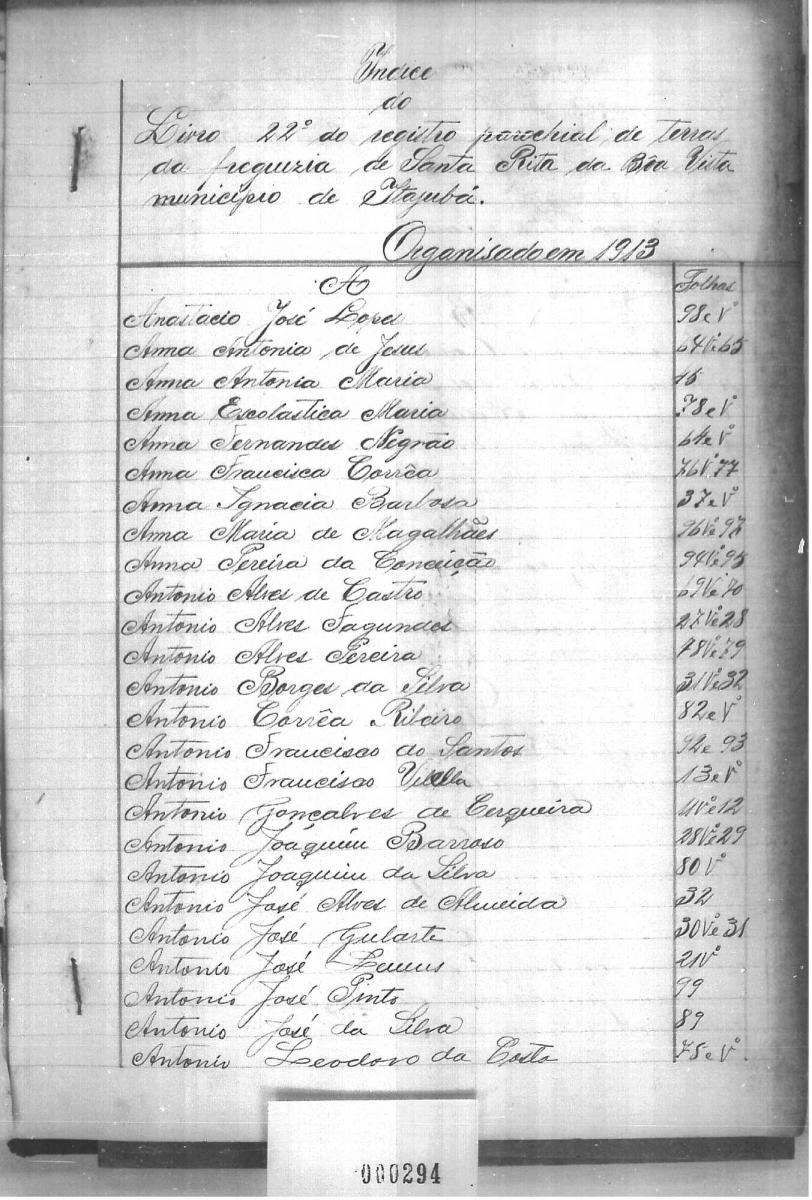 Indice
do
Livro 22º do registro parochial de terras
da freguezia de Santa Rita da Bôa Vista
municipio de Itajubá.
Organisado em 1913
A Folhas
Anastacio José Lopes 98 e Vº
Anna Antonia de Jesus 64Vº e 65
Anna Antonia Maria 15
Anna Escolastica Maria 78 e Vº
Anna Fernandes Negrão 64 e Vº
Anna Francisca Corrêa 76Vº 77
Anna Ignacia Barbosa 37 e Vº
Anna Maria de Magalhães 96Vº e 97
Anna Pereira da Conceição 94Vº e 95
Antonio Alves de Castro 69Vº e 70
Antonio Alves Fagundes 27Vº e 28
Antonio Alves Pereira 78Vº e 79
Antonio Borges da Silva 31Vº e 32
Antonio Corrêa Ribeiro 82 e Vº
Antonio Francisco do Santos 92 e 93
Antonio Francisco Vilella 13 e Vº
Antonio Gonçalves de Cerqueira 11Vº e 12
Antonio Joáquim Barroso 28Vº e 29
Antonio Joaquim da Silva 80 Vº
Antonio José Alves de Almeida 32
Antonio José Gularte 30Vº e 31
Antonio José Lemes 21Vº
Antonio José Pinto 99
Antonio José da Silva 89
Antonio Leodoro da Costa 75 e Vº
000294